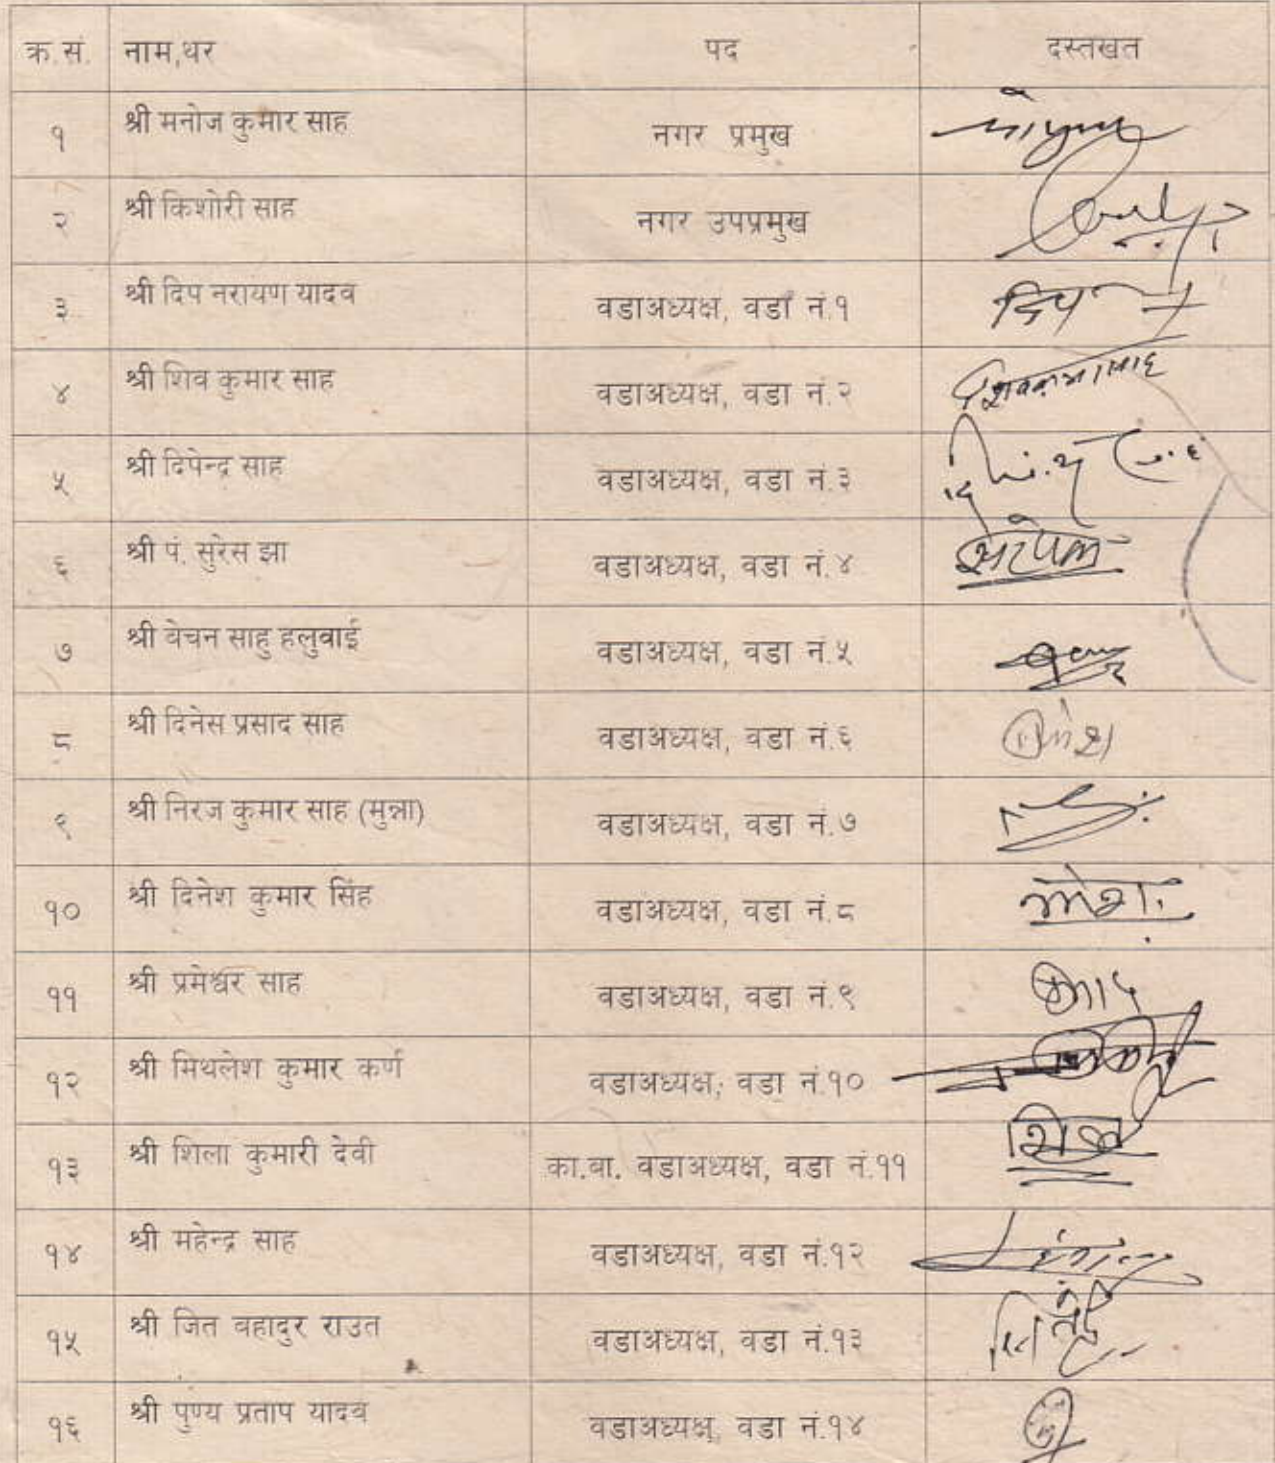 क्र.सं. नाम,थर पद दस्तखत
१ श्री मनोज कुमार साह नगर प्रमुख
२ श्री किशोरी साह नगर उपप्रमुख
३ श्री दिप नरायण यादव वडाअध्यक्ष, वडा नं.१
४ श्री शिव कुमार साह वडाअध्यक्ष, वडा नं.२
५ श्री दिपेन्द्र साह वडाअध्यक्ष, वडा नं.३
६ श्री पं. सुरेस झा वडाअध्यक्ष, वडा नं.४
७ श्री वेचन साहु हलुवाई वडाअध्यक्ष, वडा नं.५
८ श्री दिनेस प्रसाद साह वडाअध्यक्ष, वडा नं.६
९ श्री निरज कुमार साह (मुन्ना) वडाअध्यक्ष, वडा नं.७
१० श्री दिनेश कुमार सिंह वडाअध्यक्ष, वडा नं.८
११ श्री प्रमेश्वर साह वडाअध्यक्ष, वडा नं.९
१२ श्री मिथलेश कुमार कर्ण वडाअध्यक्ष, वडा नं.१०
१३ श्री शिला कुमारी देवी का.बा. वडाअध्यक्ष, वडा नं.११
१४ श्री महेन्द्र साह वडाअध्यक्ष, वडा नं.१२
१५ श्री जित वहादुर राउत वडाअध्यक्ष, वडा नं.१३
१६ श्री पुण्य प्रताप यादव वडाअध्यक्ष, वडा नं.१४